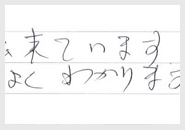 来ています
よく わかりま